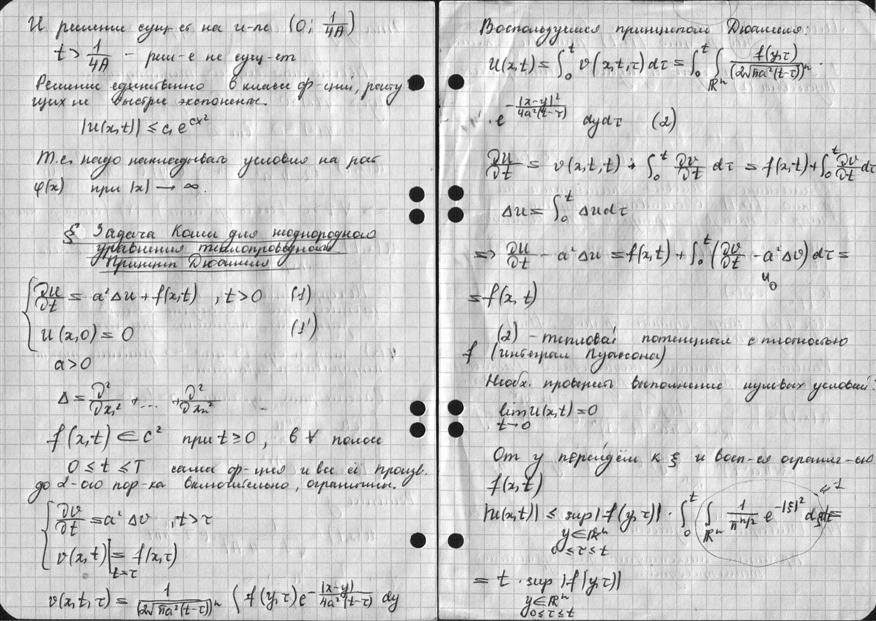 И решение сущ-ет на и-ле (0; 1/4A)
t > 1/4A – реш-е не сущ-ет
Решение единственно в классе ф-ций, расту
щих не быстрее экспоненты.
|u(x,t)| ≤ c₁ e^{cx²}
Т.е. надо накладывать условия на рост
φ(x) при |x| → ∞.
§ Задача Коши для неоднородного
уравнения теплопроводности
Принцип Дюамеля
∂u/∂t = a²Δu + f(x,t) , t>0 (1)
u(x,0) = 0 (1')
a>0
Δ = ∂²/∂x₁² + ... + ∂²/∂xn²
f(x,t) ∈ C² при t≥0, в ∀ полосе
0 ≤ t ≤ T сама ф-ция и все её произв.
до 2-ого пор-ка включительно, ограничены.
∂v/∂t = a²Δv , t>τ
v(x,t)|_{t=τ} = f(x,τ)
v(x,t,τ) = 1/(2√(πa²(t-τ)))ⁿ ∫ f(y,τ) e^{-|x-y|²/4a²(t-τ)} dy
Воспользуемся принципом Дюамеля:
u(x,t) = ∫₀ᵗ v(x,t,τ) dτ = ∫₀ᵗ ∫_{ℝⁿ} f(y,τ)/(2√(πa²(t-τ)))ⁿ ·
· e^{-|x-y|²/4a²(t-τ)} dy dτ (2)
∂u/∂t = v(x,t,t) + ∫₀ᵗ ∂v/∂t dτ = f(x,t) + ∫₀ᵗ ∂v/∂t dτ
Δu = ∫₀ᵗ Δv dτ
=> ∂u/∂t - a²Δu = f(x,t) + ∫₀ᵗ (∂v/∂t - a²Δv) dτ =
= f(x,t)
(2) – тепловой потенциал с плотностью
f (интеграл Пуассона)
Необх. проверить выполнение нулевых условий:
lim u(x,t) = 0
t→0
От y перейдём к ξ и восп-ся огранич-ью
f(x,t)
|u(x,t)| ≤ sup |f(y,τ)| · ∫₀ᵗ ∫_{ℝⁿ} 1/π^{n/2} e^{-|ξ|²} dξdτ =
y∈ℝⁿ
0≤τ≤t
= t · sup |f(y,τ)|
y∈ℝⁿ
0≤τ≤t